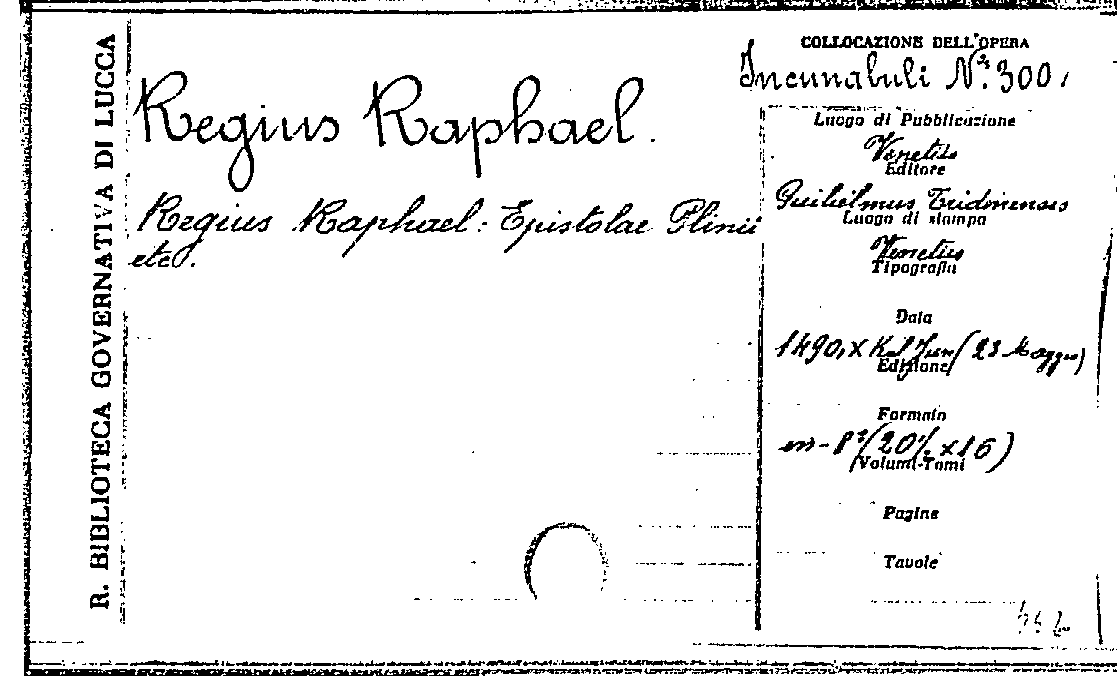 R. BIBLIOTECA GOVERNATIVA DI LUCCA
Regius Raphael.
Regius Raphael: Epistolae Plinii
etc.
COLLOCAZIONE DELL'OPERA
Incunabuli Nº. 300.
Luogo di Pubblicazione
Venetiis
Editore
Guilielmus Tridinensis
Luogo di stampa
Venetiis
Tipografia
Data
1490, X Kal Jun (23 Maggio)
Edizione
Formato
in-8º (20½ x 16)
Volumi-Tomi
Pagine
Tavole